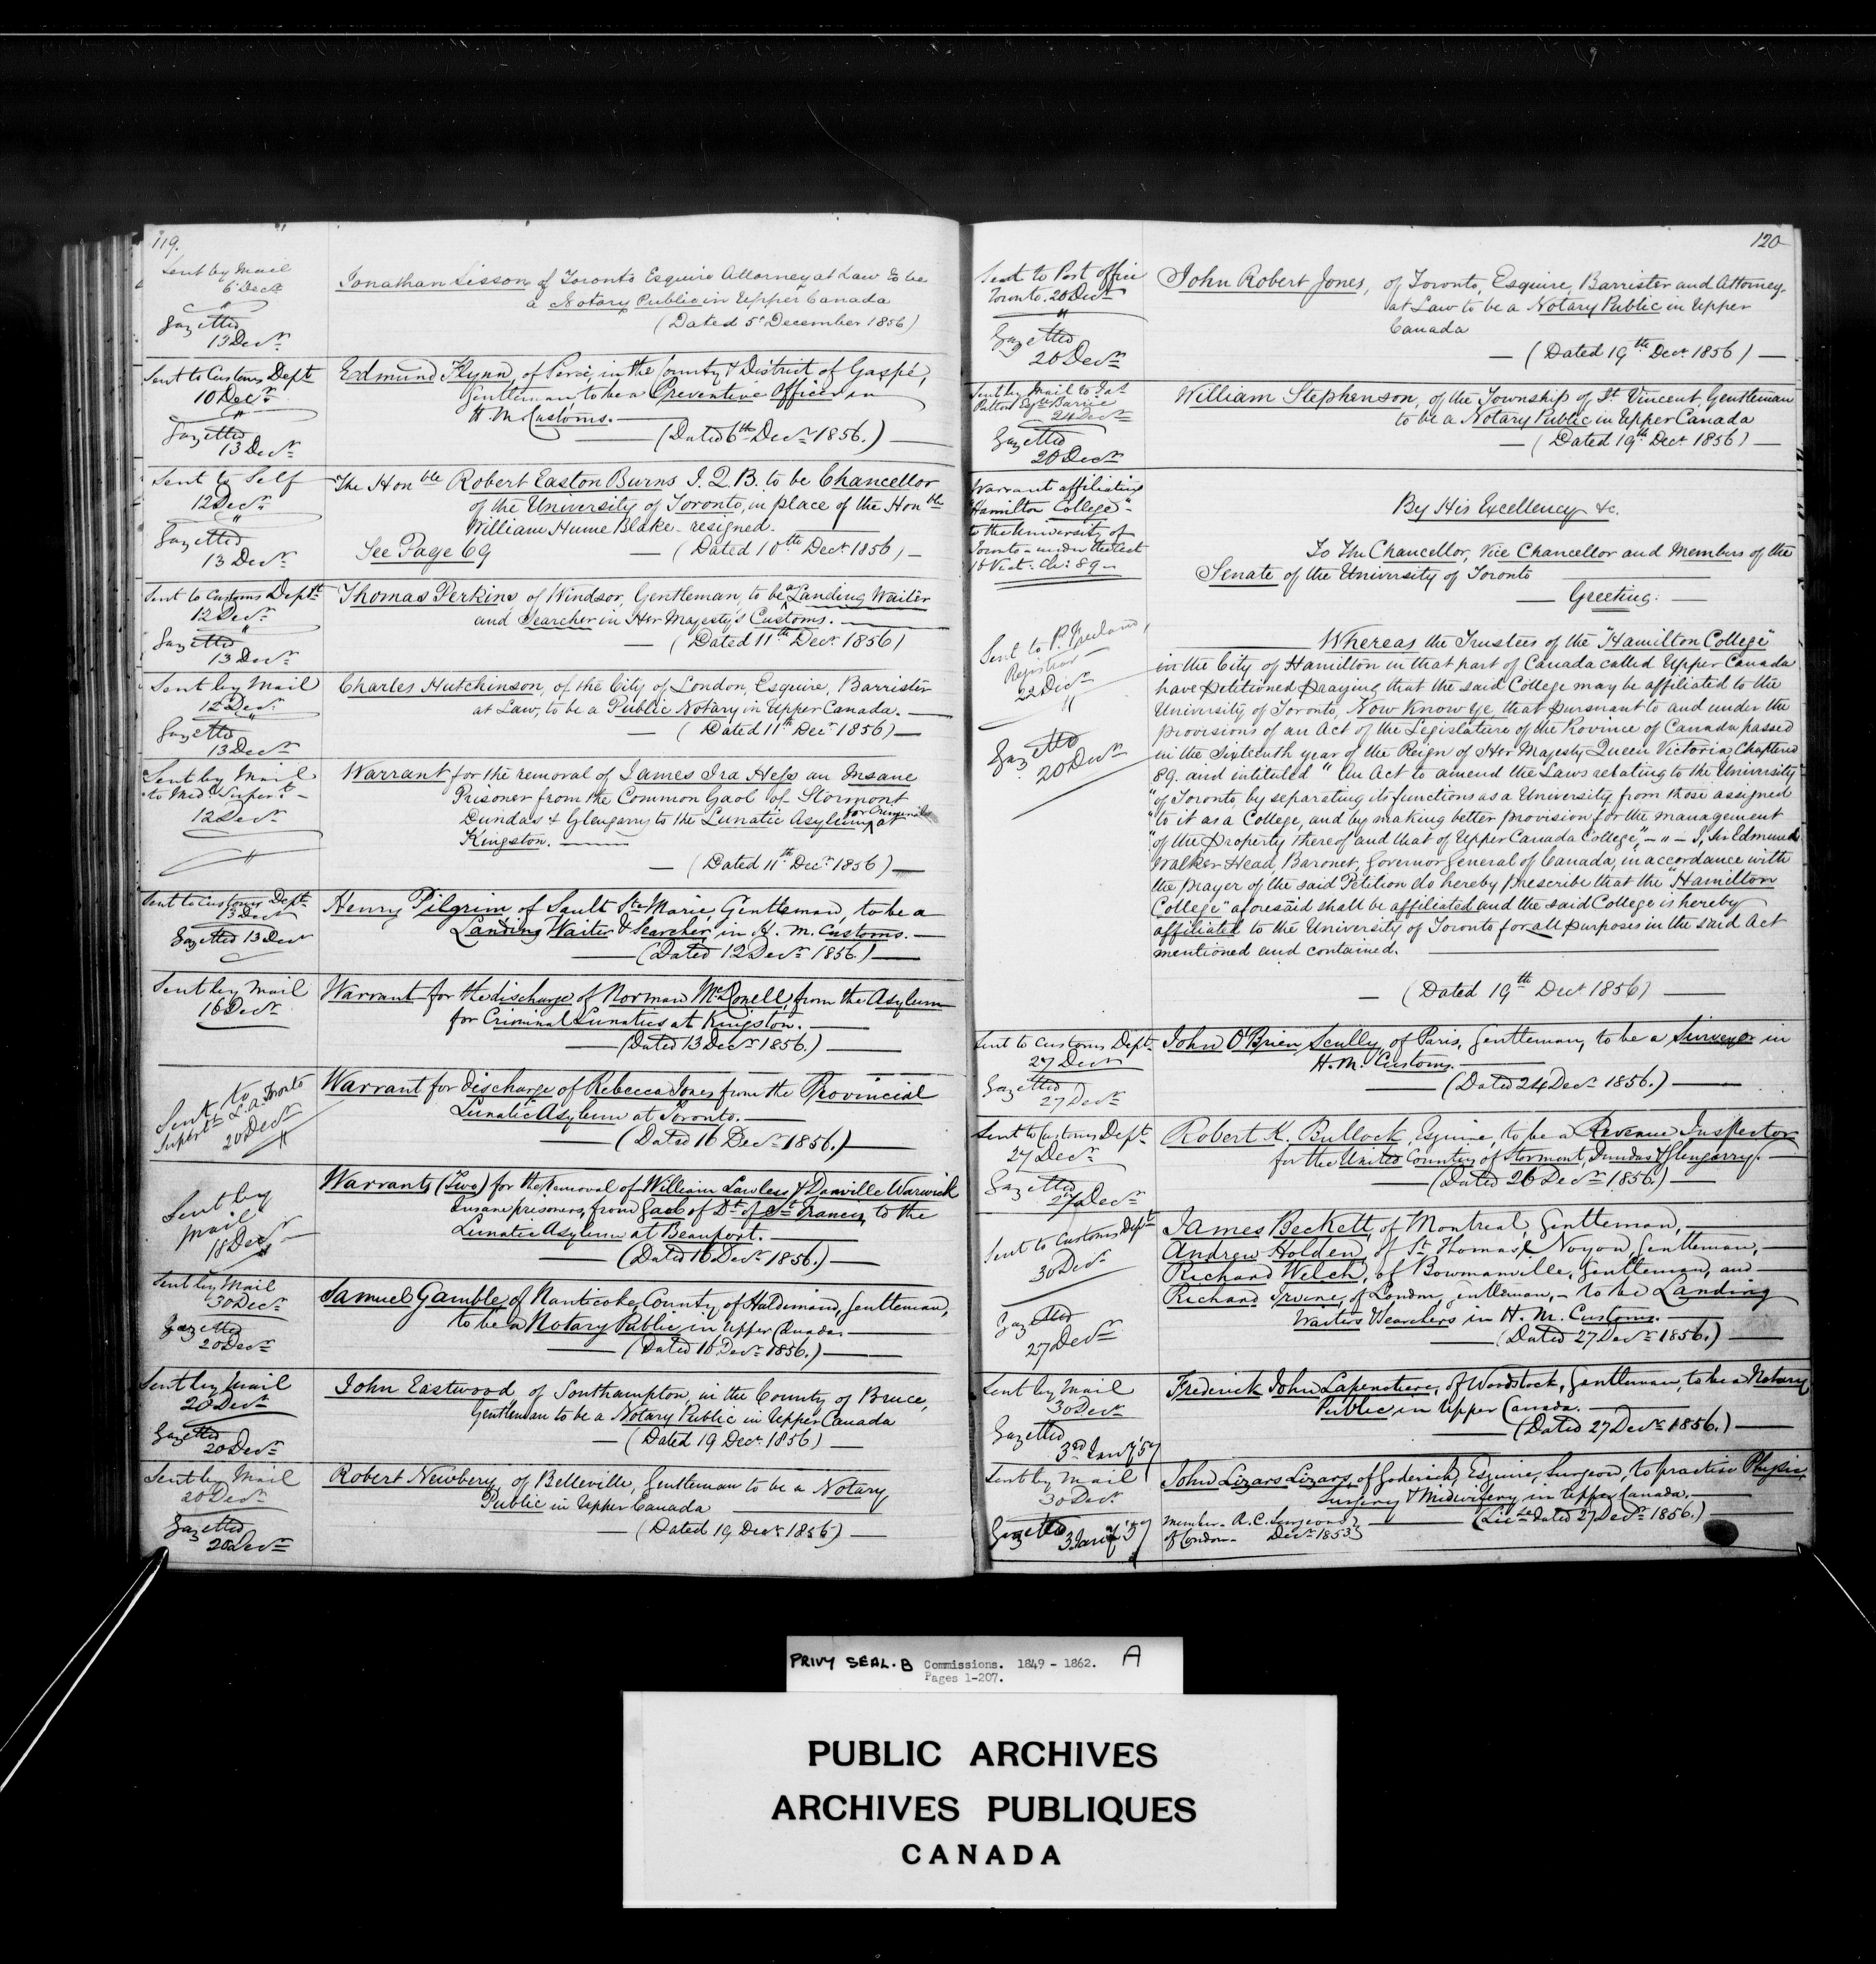 119.
Sent by Mail
6 Decr
"
Gazetted
13 Decr
Jonathan Sisson of Toronto Esquire Attorney at Law to be
a Notary Public in Upper Canada
(Dated 5th December 1856)
Sent to Customs Dept
10 Decr
"
Gazetted
13 Decr
Edmund Flynn, of Percé, in the County & District of Gaspé,
Gentleman to be a Preventive Officer in
H. M. Customs.
(Dated 6th Decr 1856.)
Sent to Self
12 Decr
"
Gazetted
13 Decr
The Honble Robert Easton Burns J. Q. B. to be Chancellor
of the University of Toronto, in place of the Honble
William Hume Blake - resigned.
See Page 69
(Dated 10th Decr 1856)
Sent to Customs Deptt
12 Decr
"
Gazetted
13 Decr
Thomas Perkins of Windsor, Gentleman, to be a Landing Waiter
and Searcher in Her Majesty's Customs.
(Dated 11th Decr 1856)
Sent by Mail
12 Decr
"
Gazetted
13 Decr
Charles Hutchinson, of the City of London, Esquire, Barrister
at Law, to be a Public Notary in Upper Canada.
(Dated 11th Decr 1856)
Sent by Mail
to Medl Supert
12 Decr
"
Warrant for the removal of James Ira Hess an Insane
Prisoner from the Common Gaol of Stormont
Dundas & Glengarry to the Lunatic Asylum for Criminals at
Kingston.
(Dated 11th Decr 1856)
Sent to Customs Dept
13 Decr
Gazetted 13 Decr
Henry Pilgrim of Sault Ste Marie, Gentleman, to be a
Landing Waiter & Searcher, in H. M. Customs.
(Dated 12 Decr 1856.)
Sent by Mail
16 Decr
Warrant for the discharge of Norman McDonell, from the Asylum
for Criminal Lunatics at Kingston.
(Dated 13 Decr 1856.)
Sent to
Supert L. A. Toronto
20 Decr
"
Warrant for discharge of Rebecca Jones from the Provincial
Lunatic Asylum at Toronto.
(Dated 16 Decr 1856.)
Sent by
Mail
18 Decr
Warrants (Two) for the removal of William Lawless & Danville Warwick
Insane prisoners, from Gaol of Dt of St Francis, to the
Lunatic Asylum at Beauport.
(Dated 16 Decr 1856.)
Sent by Mail
30 Decr
Gazetted
20 Decr
Samuel Gamble, of Nanticoke, County of Haldimand, Gentleman,
to be a Notary Public in Upper Canada.
(Dated 16 Decr 1856.)
Sent by Mail
20 Decr
Gazetted
20 Decr
John Eastwood of Southampton, in the County of Bruce,
Gentleman to be a Notary Public in Upper Canada
(Dated 19 Decr 1856)
Sent by Mail
20 Decr
Gazetted
20 Decr
Robert Newbery, of Belleville, Gentleman to be a Notary
Public in Upper Canada
(Dated 19 Decr 1856)
120
Sent to Post Office
Toronto. 20 Decr
"
Gazetted
20 Decr
John Robert Jones, of Toronto, Esquire, Barrister and Attorney-
at Law to be a Notary Public in Upper
Canada
(Dated 19th Decr 1856)
Sent by Mail to Jas
Patton Esqre Barrie
24 Decr
Gazetted
20 Decr
William Stephenson, of the Township of St Vincent Gentleman
to be a Notary Public in Upper Canada
(Dated 19th Decr 1856)
Warrant affiliating
"Hamilton College"
to the University of
Toronto - under the Act
16 Vict: Ch: 89
By His Excellency &c.
To The Chancellor, Vice Chancellor and Members of the
Senate of the University of Toronto
Greeting:
Sent to P. Freeland,
Registrar
22 Decr
"
Gazetted
20 Decr
Whereas the Trustees of the "Hamilton College"
in the City of Hamilton in that part of Canada called Upper Canada
have petitioned praying that the said College may be affiliated to the
University of Toronto, Now Know Ye, that pursuant to and under the
provisions of an Act of the Legislature of the Province of Canada passed
in the Sixteenth year of the Reign of Her Majesty Queen Victoria, Chaptered
89. and intituled "An Act to amend the Laws relating to the University
"of Toronto, by separating its functions as a University from those assigned
"to it as a College, and by making better provision for the management
"of the Property thereof and that of Upper Canada College," - " - I, Sir Edmund
Walker Head, Baronet, Governor General of Canada, in accordance with
the prayer of the said Petition do hereby prescribe that the "Hamilton
College" aforesaid shall be affiliated and the said College is hereby
affiliated to the University of Toronto for all purposes in the said Act
mentioned and contained.
(Dated 19th Decr 1856)
Sent to Customs Dept
27 Decr
Gazetted
27 Decr
John O'Brien Scully, of Paris, Gentleman, to be a Surveyor in
H. M. Customs.
(Dated 24 Decr 1856.)
Sent to Customs Dept
27 Decr
Gazetted
27 Decr
Robert K. Bullock, Esquire, to be a Revenue Inspector
for the United Counties of Stormont, Dundas & Glengarry.
(Dated 26 Decr 1856.)
Sent to Customs Deptt
30 Decr
Gazetted
27 Decr
James Beckett, of Montreal, Gentleman,
Andrew Holden, of St Thomas, Noyon, Gentleman,
Richard Welch, of Bowmanville, Gentleman, and
Richard Irvine, of London, Gentleman, - to be Landing
Waiters & Searchers in H. M. Customs.
(Dated 27 Decr 1856.)
Sent by Mail
30 Decr
Gazetted
3rd Jany '57
Frederick John Lapenotiere, of Woodstock, Gentleman, to be a Notary
Public in Upper Canada.
(Dated 27 Decr 1856.)
Sent by Mail
30 Decr
Gazetted 3 Jany '57
John Lizars Lizars, of Goderich, Esquire, Surgeon, to practise Physic,
Surgery & Midwifery in Upper Canada.
(Lice dated 27 Decr 1856.)
Member R. C. Surgeons
of London - Decr 1853
PRIVY SEAL. B Commissions. 1849 - 1862. A
Pages 1-207.
PUBLIC ARCHIVES
ARCHIVES PUBLIQUES
CANADA